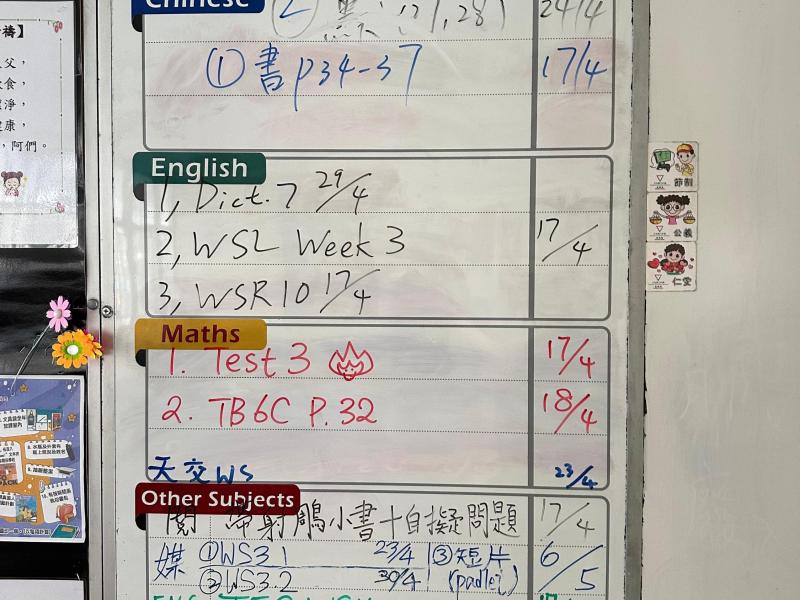 Chinese
24/4
① 書 p34-37 17/4
English
1, Dict. 7 29/4
2, WSL Week 3 17/4
3, WSR10 17/4
Maths
1. Test 3 17/4
2. TB6C P.32 18/4
天交WS 23/4
Other Subjects
閱 帶射鵰小書+自擬問題 17/4
媒 ①WS3.1 23/4 ③短片 6/5
②WS3.2 30/4 (padlet)
父,
食,
淨,
健康,
,阿們。
節制
公義
仁愛